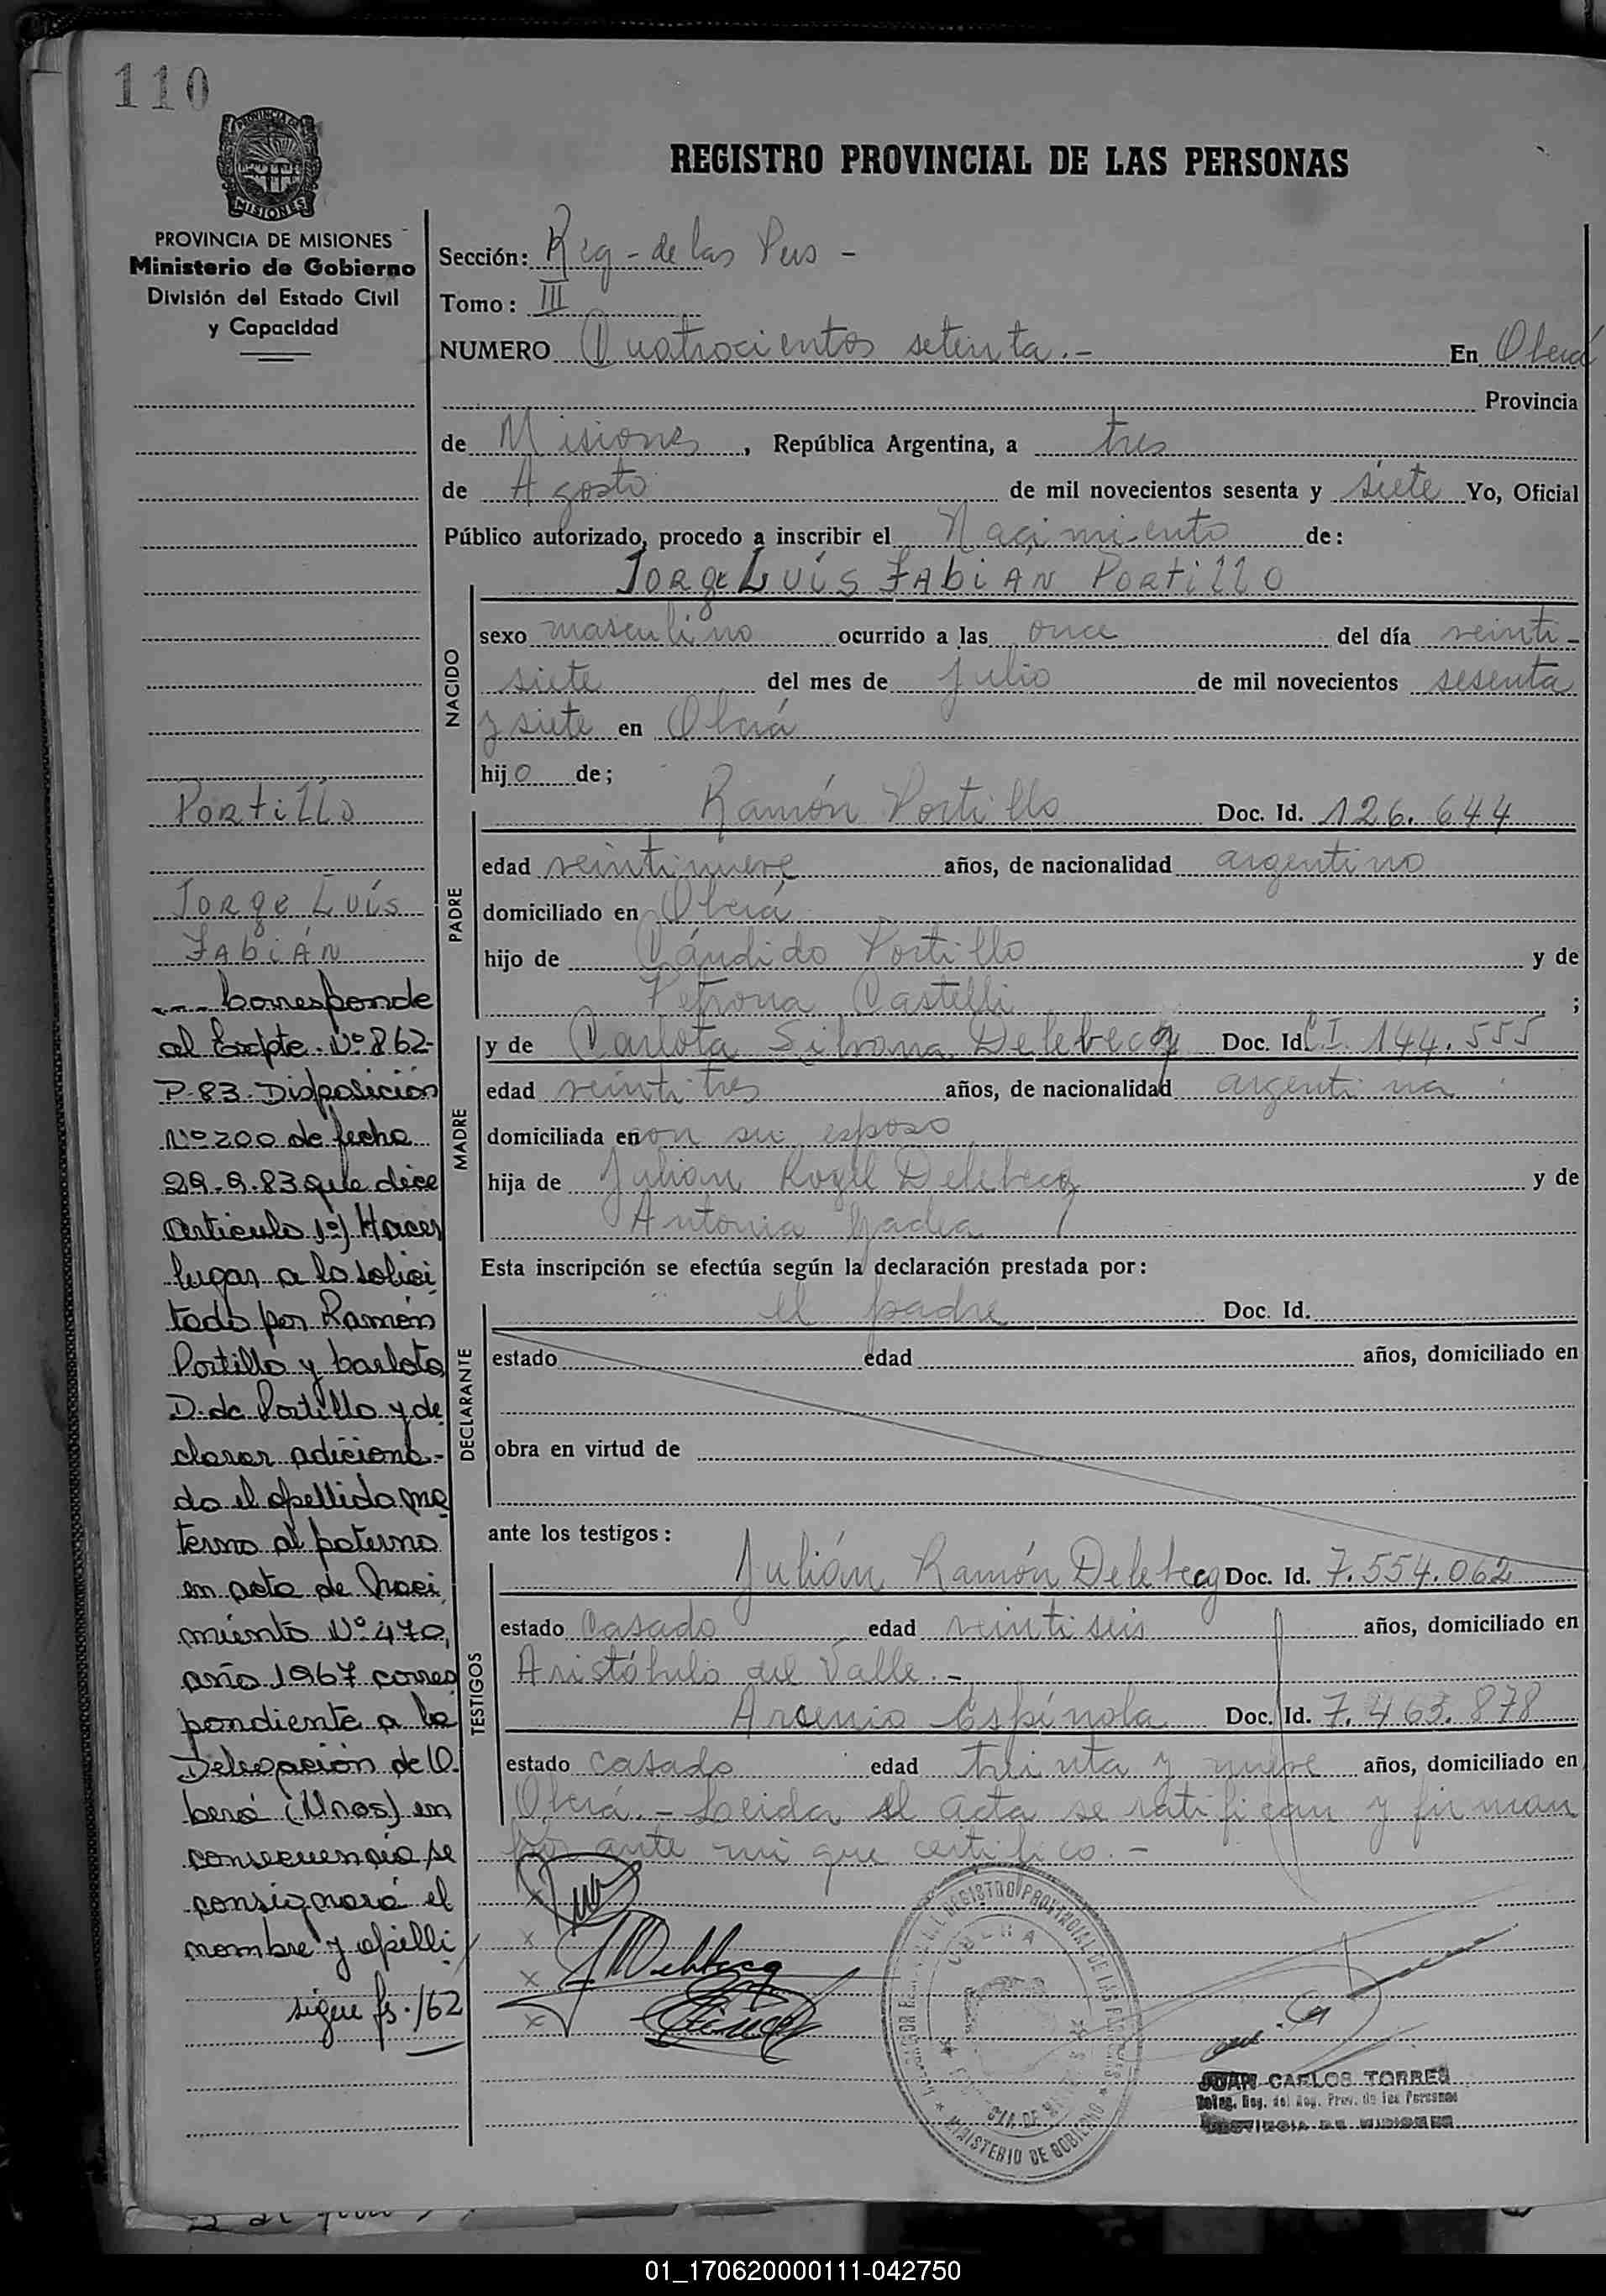 110
PROVINCIA DE
MISIONES
PROVINCIA DE MISIONES
Ministerio de Gobierno
División del Estado Civil
y Capacidad
REGISTRO PROVINCIAL DE LAS PERSONAS
Sección: Reg - de las Pers -
Tomo: III
NUMERO Cuatrocientos setenta.- En Oberá
Provincia
de Misiones, República Argentina, a tres
de Agosto de mil novecientos sesenta y siete Yo, Oficial
Público autorizado, procedo a inscribir el Nacimiento de:
Jorge Luís Fabian Portillo
NACIDO
sexo masculino ocurrido a las once del día veinti-
siete del mes de julio de mil novecientos sesenta
y siete en Oberá
hijo de;
PADRE
Ramón Portillo Doc. Id. 126.644
edad veintinueve años, de nacionalidad argentino
domiciliado en Oberá
hijo de Cándido Portillo y de
Petrona Castelli ;
MADRE
y de Carlota Silvana Delebecq Doc. Id. C.I. 144.555
edad veintitres años, de nacionalidad argentina
domiciliada en con su esposo
hija de Julian Delebecq y de
Antonia
Esta inscripción se efectúa según la declaración prestada por:
DECLARANTE
el padre Doc. Id.
estado edad años, domiciliado en
obra en virtud de
ante los testigos:
TESTIGOS
Julián Ramón Delebecq Doc. Id. 7.554.062
estado Casado edad veintiseis años, domiciliado en
Aristóbulo del Valle.-
Arsenio Espínola Doc. Id. 7.463.878
estado casado edad treinta y nueve años, domiciliado en
Oberá.- Leida el acta se ratifican y firman
por ante mi que certifico.-
Portillo
Jorge Luís
Fabián
Corresponde
al Expte. Nº 862-
P-83. Disposición
Nº 200 de fecha
29-9-83 que dice
Artículo 1º) Hacer
lugar a lo solici
tado por Ramón
Portillo y Carlota
D. de Portillo y de
clarar adiciona-
do el apellido ma
terno al paterno
en acta de Naci
miento Nº 470,
año 1967 corres
pondiente a la
Delegación de O.
berá (Mnes) en
consecuencia se
consignará el
nombre y apelli
sigue fs. 162
REGISTRO PROVINCIAL DE LAS PERSONAS
OBERA
MINISTERIO DE GOBIERNO
JUAN CARLOS TORRES
Deleg. Reg. del Reg. Prov. de las Personas
PROVINCIA DE MISIONES
01_170620000111-042750